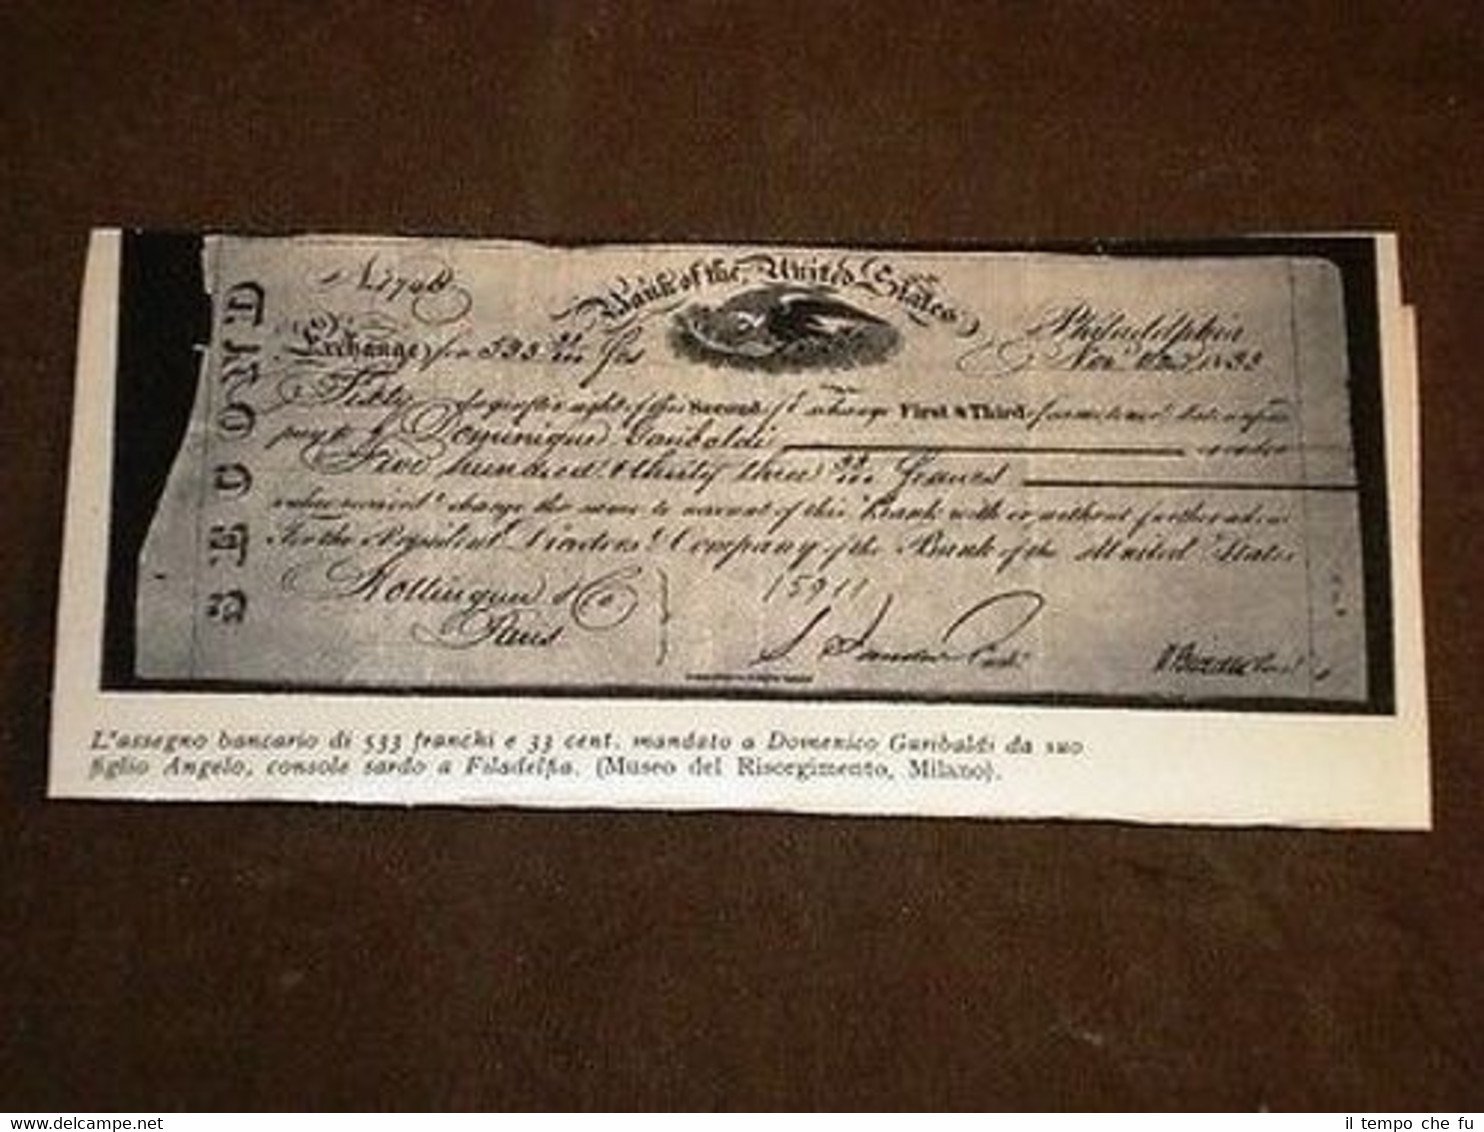 SECOND
Bank of the United States
Philadelphia
Exchange for 533 33/100 fcs
Sixty days after sight of this Second of Exchange First & Third of same tenor
pay to Dominique Garibaldi
Five hundred & thirty three 33/100 francs
value received & charge the same to account of this Bank with or without further advice
For the President Directors & Company of the Bank of the United States
Hottinguer & Co
Paris
15911
L'assegno bancario di 533 franchi e 33 cent. mandato a Domenico Garibaldi da suo
figlio Angelo, console sardo a Filadelfia. (Museo del Risorgimento, Milano).
il tempo che fu